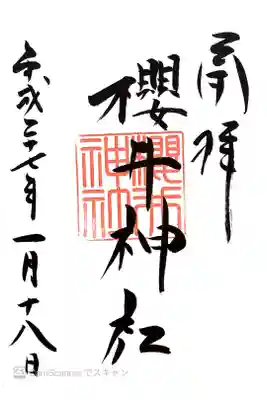 奉拝
櫻井神社
平成二十七年一月十八日
CamScanner でスキャン